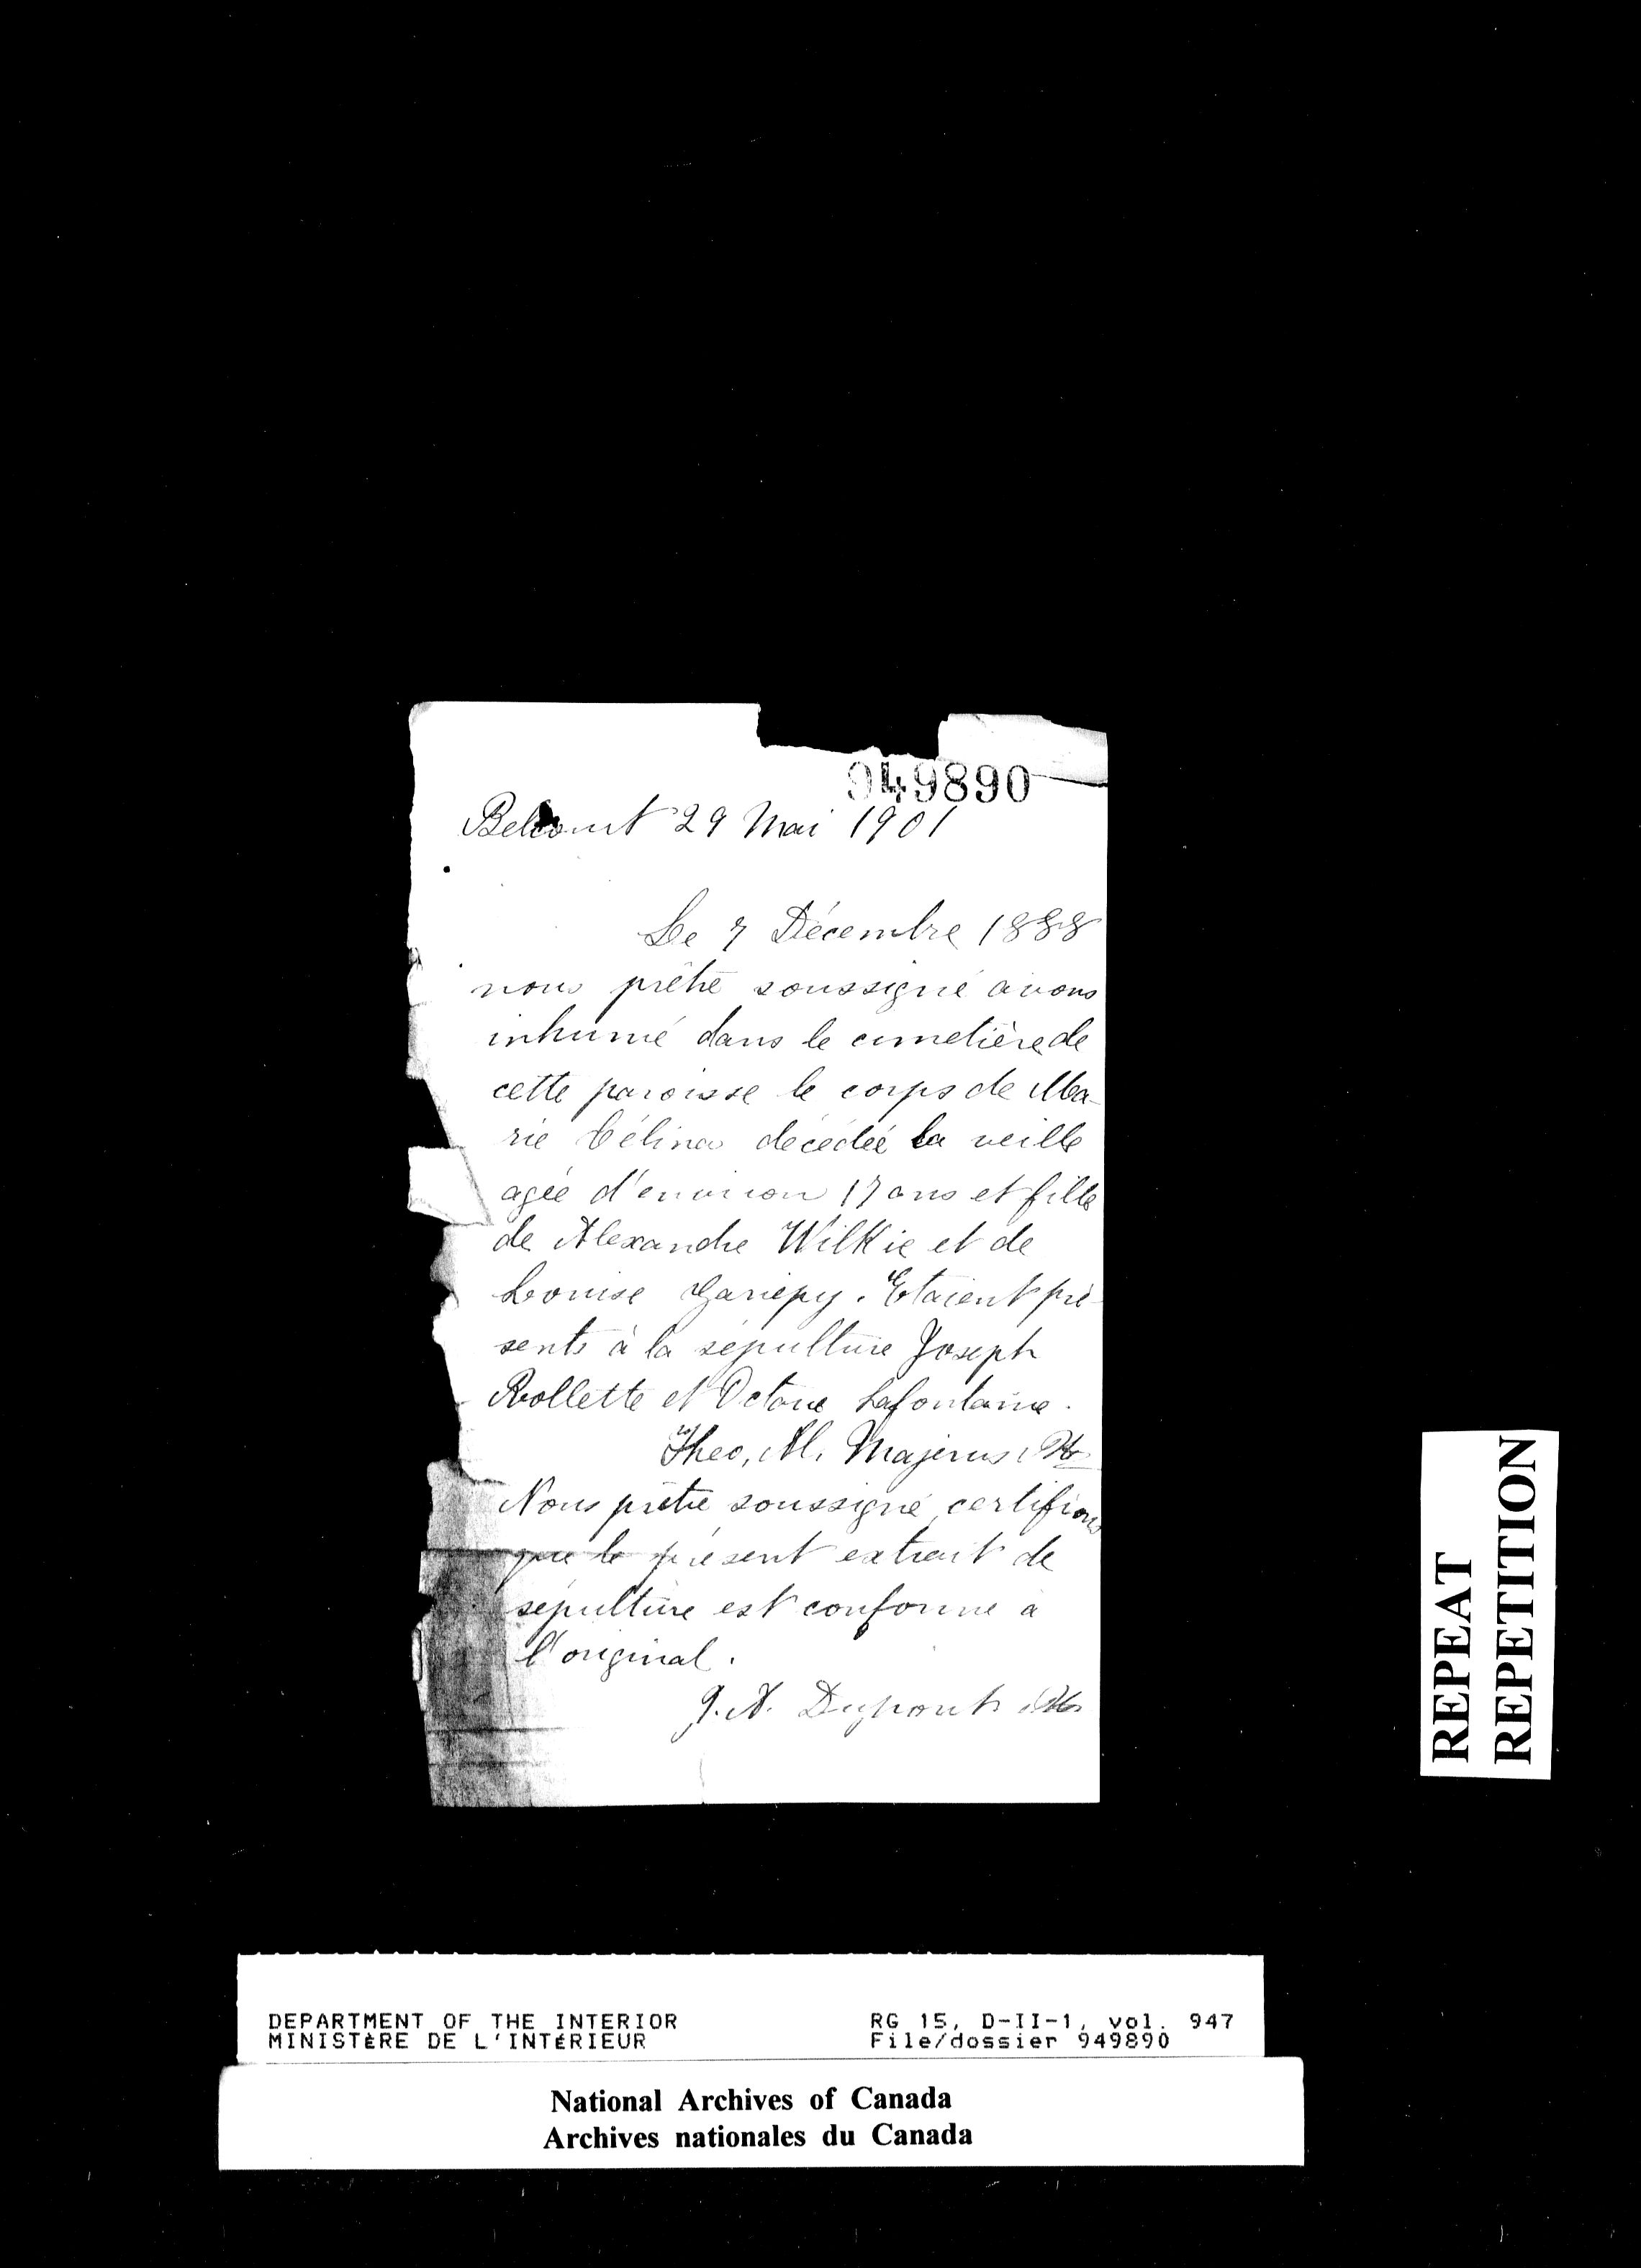 949890
Belcourt 29 Mai 1901
Le 7 Décembre 1888
nous prêtre soussigné avons
inhumé dans le cimetière de
cette paroisse le corps de Ma-
rie Célina décédée la veille
agée d'environ 17 ans et fille
de Alexandre Wilkie et de
Louise Gariepy. Etaient pré-
sents à la sépulture Joseph
Rollette et Octave Lafontaine.
Theo, M. Majerus Ptr
Nous prêtre soussigné certifions
que le présent extrait de
sépulture est conforme à
l'original.
J. A. Dupont Ptr
REPEAT
REPETITION
DEPARTMENT OF THE INTERIOR RG 15, D-II-1, vol. 947
MINISTÈRE DE L'INTÉRIEUR File/dossier 949890
National Archives of Canada
Archives nationales du Canada